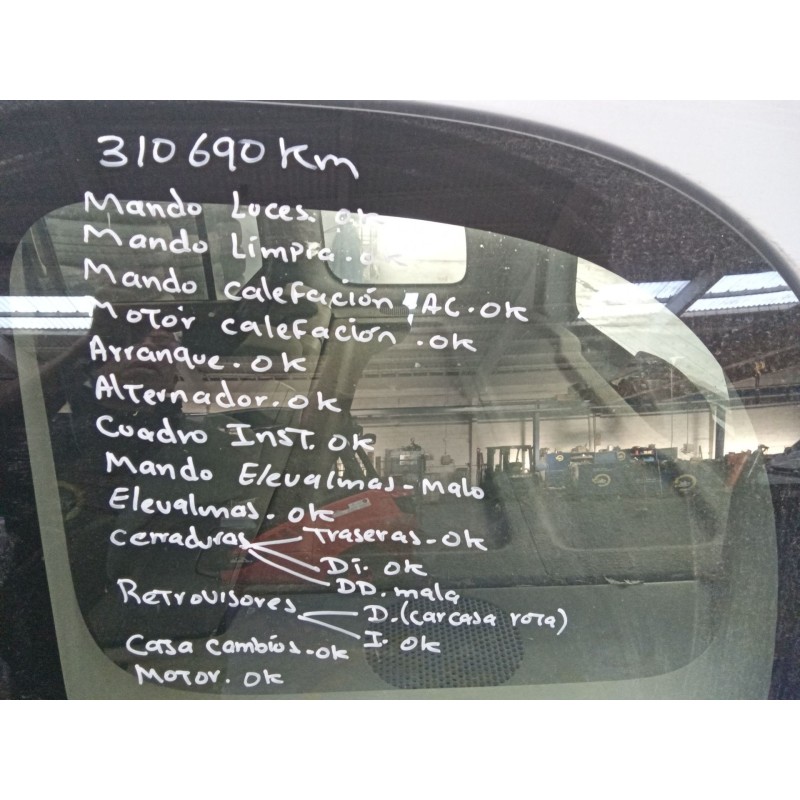 310 690 Km
Mando Luces. ok
Mando Limpia. ok
Mando calefación, AC. ok
Motor calefación. ok
Arranque. ok
Alternador. ok
Cuadro Inst. ok
Mando Elevalunas - Malo
Elevalunas. ok
cerraduras Traseras - ok
Di. ok
DD. mala
Retrovisores D. (carcasa rota)
I. ok
Casa cambios. ok
Motor. ok